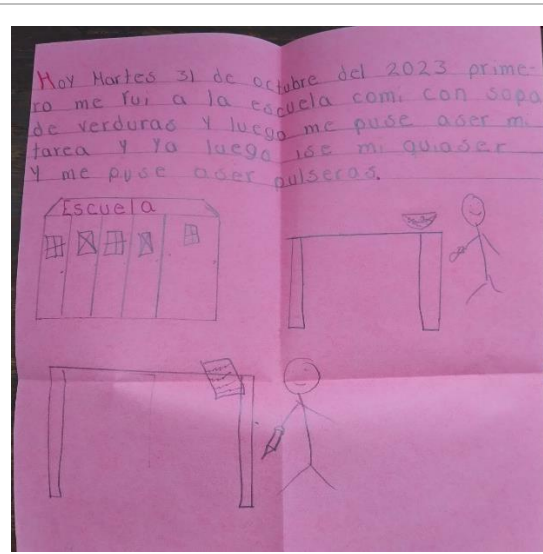 Hoy Martes 31 de octubre del 2023 prime-
ro me fui a la escuela comi con sopa
de verduras y luego me puse aser mi
tarea y ya luego ise mi quiaser
y me puse aser pulseras.
Escuela